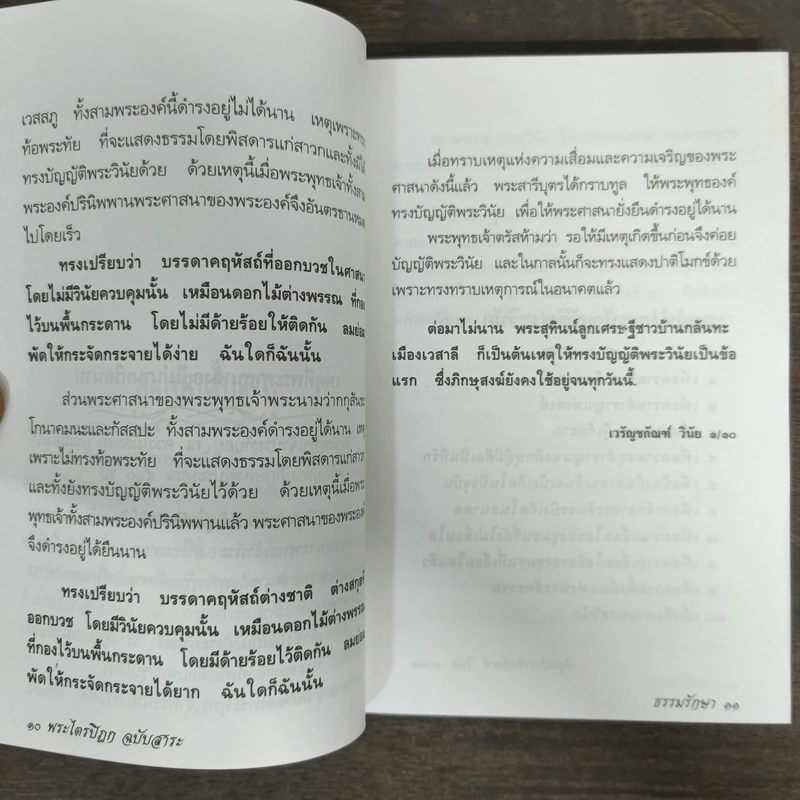 เวสสภู ทั้งสามพระองค์นี้ดำรงอยู่ไม่ได้นาน เหตุเพราะทรง
ท้อพระทัย ที่จะแสดงธรรมโดยพิสดารแก่สาวกและทั้งมิได้
ทรงบัญญัติพระวินัยด้วย ด้วยเหตุนี้เมื่อพระพุทธเจ้าทั้งสาม
พระองค์ปรินิพพานพระศาสนาของพระองค์จึงอันตรธานหมด
ไปโดยเร็ว
ทรงเปรียบว่า บรรดาคฤหัสถ์ที่ออกบวชในศาสนา
โดยไม่มีวินัยควบคุมนั้น เหมือนดอกไม้ต่างพรรณ ที่กอง
ไว้บนพื้นกระดาน โดยไม่มีด้ายร้อยให้ติดกัน ลมย่อม
พัดให้กระจัดกระจายได้ง่าย ฉันใดก็ฉันนั้น
ส่วนพระศาสนาของพระพุทธเจ้าพระนามว่ากกุสันธะ
โกนาคมนะและกัสสปะ ทั้งสามพระองค์ดำรงอยู่ได้นาน เหตุ
เพราะไม่ทรงท้อพระทัย ที่จะแสดงธรรมโดยพิสดารแก่สาวก
และทั้งยังทรงบัญญัติพระวินัยไว้ด้วย ด้วยเหตุนี้เมื่อพระ
พุทธเจ้าทั้งสามพระองค์ปรินิพพานแล้ว พระศาสนาของพระองค์
จึงดำรงอยู่ได้ยืนนาน
ทรงเปรียบว่า บรรดาคฤหัสถ์ต่างชาติ ต่างสกุลที่
ออกบวช โดยมีวินัยควบคุมนั้น เหมือนดอกไม้ต่างพรรณ
ที่กองไว้บนพื้นกระดาน โดยมีด้ายร้อยไว้ติดกัน ลมย่อม
พัดให้กระจัดกระจายได้ยาก ฉันใดก็ฉันนั้น
๑๐ พระไตรปิฎก ฉบับสาระ
เมื่อทราบเหตุแห่งความเสื่อมและความเจริญของพระ
ศาสนาดังนี้แล้ว พระสารีบุตรได้กราบทูล ให้พระพุทธองค์
ทรงบัญญัติพระวินัย เพื่อให้พระศาสนายั่งยืนดำรงอยู่ได้นาน
พระพุทธเจ้าตรัสห้ามว่า รอให้มีเหตุเกิดขึ้นก่อนจึงค่อย
บัญญัติพระวินัย และในกาลนั้นก็จะทรงแสดงปาติโมกข์ด้วย
เพราะทรงทราบเหตุการณ์ในอนาคตแล้ว
ต่อมาไม่นาน พระสุทินน์ลูกเศรษฐีชาวบ้านกลันทะ
เมืองเวสาลี ก็เป็นต้นเหตุให้ทรงบัญญัติพระวินัยเป็นข้อ
แรก ซึ่งภิกษุสงฆ์ยังคงใช้อยู่จนทุกวันนี้.
เวรัญชกัณฑ์ วินัย ๑/๑๐
ธรรมรักษา ๑๑